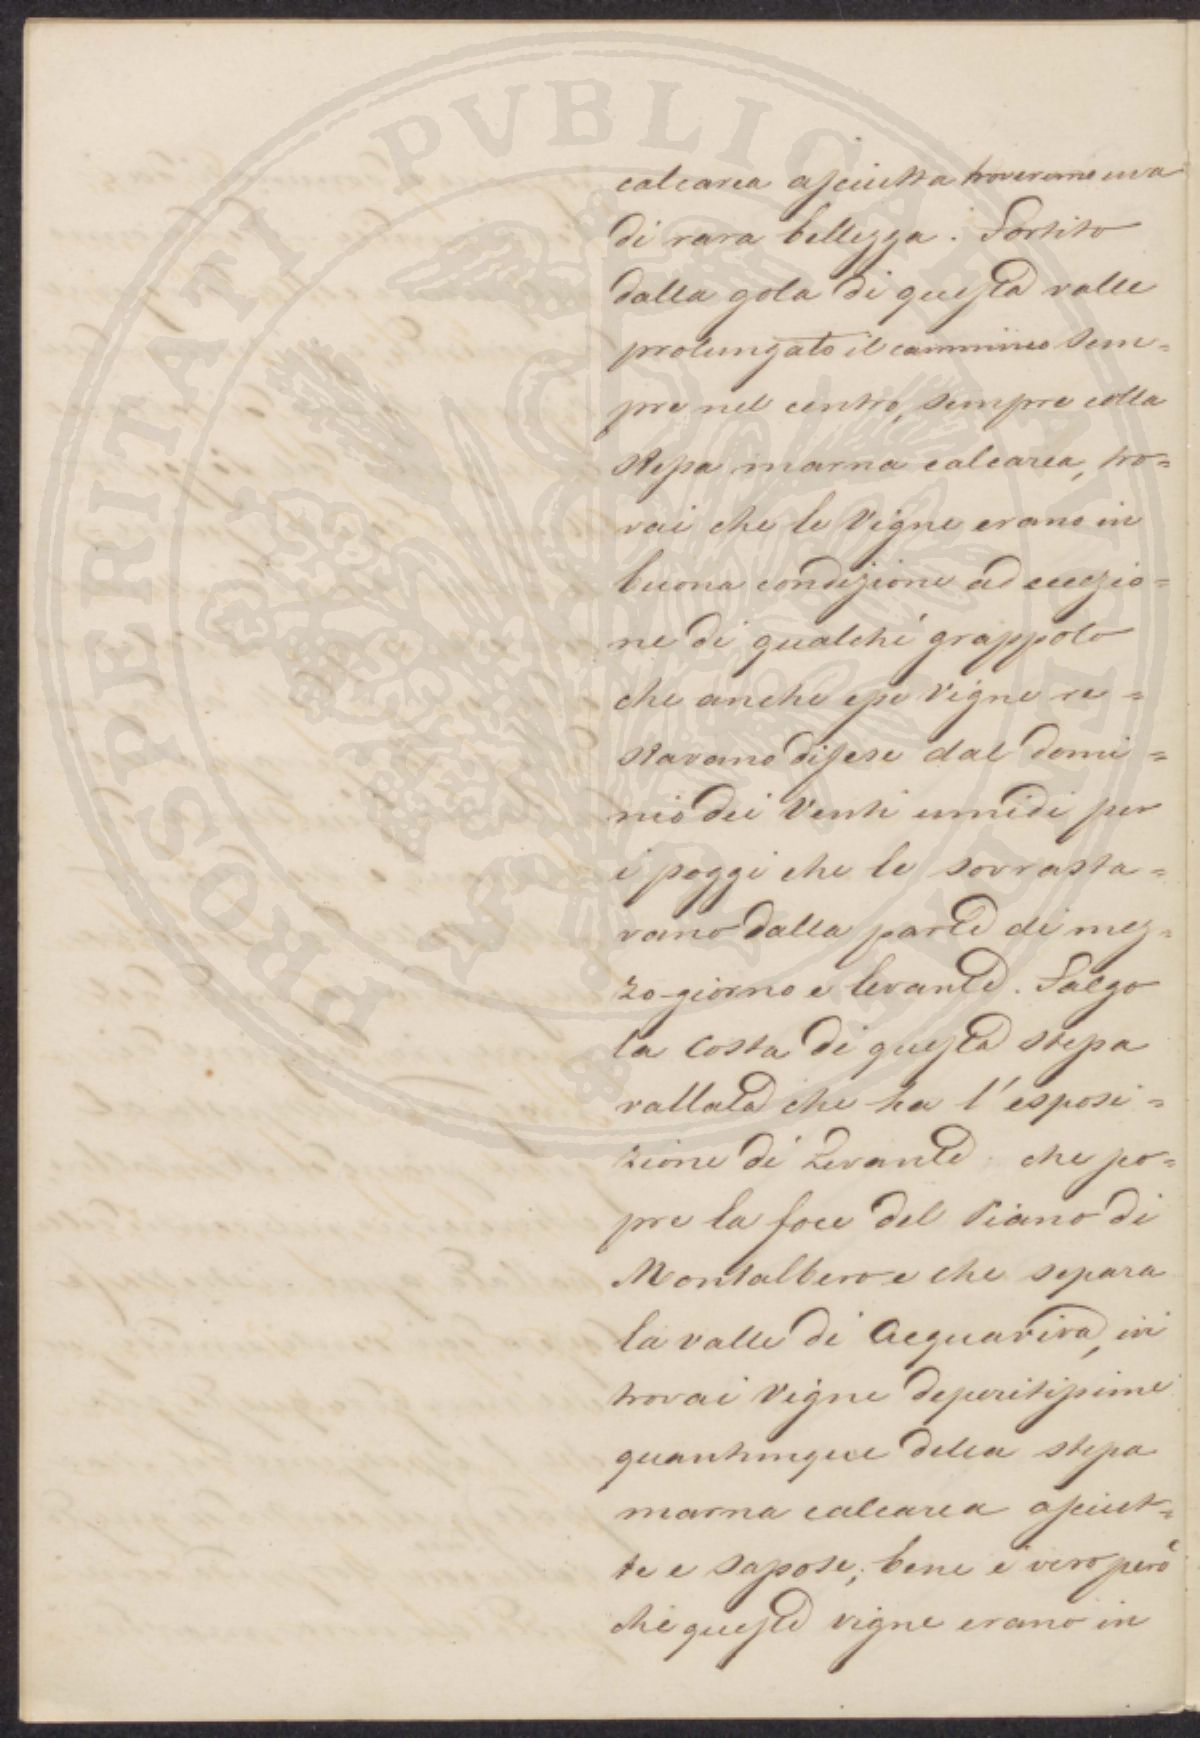 calcarea asciutta troveremo uva
di rara bellezza. Sortito
dalla gola di questa valle
prolungato il cammino sem=
pre nel centro, sempre colla
stessa marna calcarea, tro=
vai che le Vigne erano in
buona condizione ad eccezio=
ne di qualché grappolo
che anche esse Vigne re=
stavano difese dal domi=
nio dei Venti umidi per
i poggi che le sovrasta=
vano dalla parte di mez=
zo-giorno e levante. Salgo
la Costa di questa stessa
vallata che ha l'esposi=
zione di Levante che po=
pre la foce del Piano di
Montalbero e che separa
la valle di Acquaviva, ivi
trovai Vigne deperitissime
quantunque della stessa
marna calcarea asciut=
te e sassose; bene è vero però
che queste vigne erano in
PROSPERITATI PVBLICAE